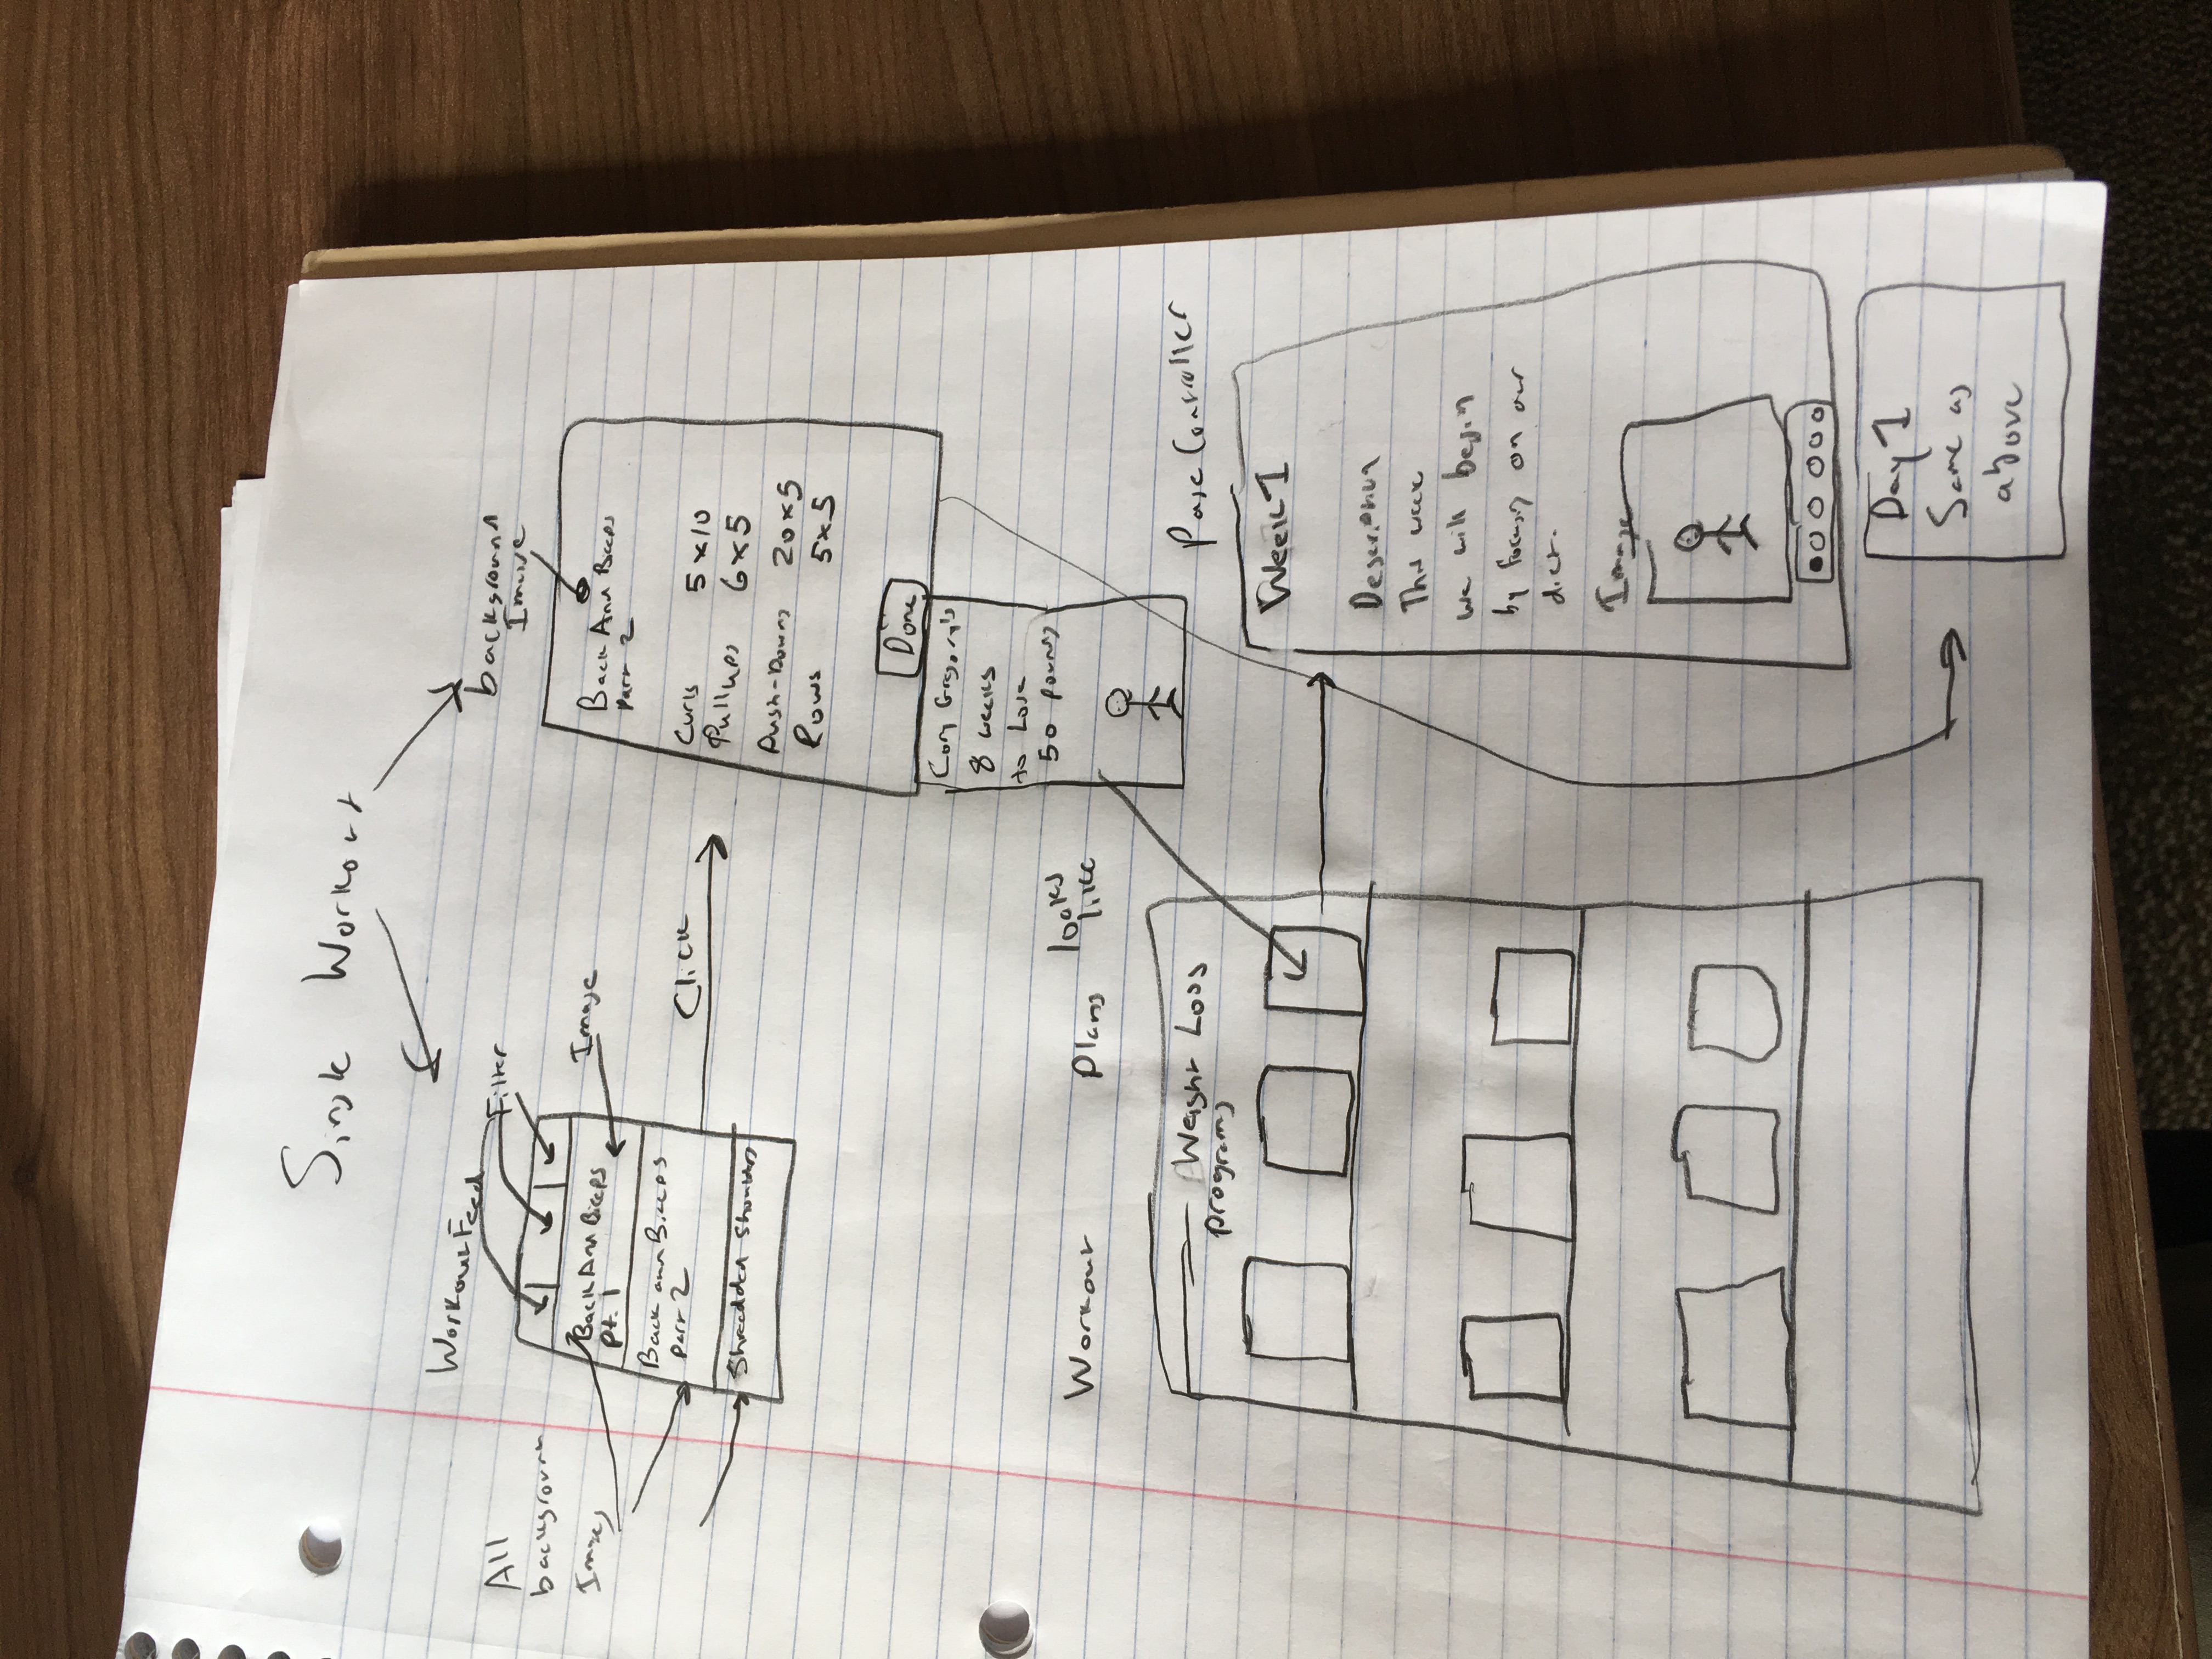 Single Workout
Workout Feed
Filter
All
background
Images
Back And Biceps
Pt. 1
Image
Back and Biceps
Part 2
Shredded Shoulders
Click
background
Image
Back And Biceps
Part 2
Curls 5x10
Pullups 6x5
Push-Downs 20x5
Rows 5x5
Done
Cory Gregory's
8 weeks
to Lose
50 pounds
Workout Plans
looks
like
Weight Loss
programs
Page Controller
Week 1
Description
This week
we will begin
by focusing on our
diet.
Image
Day 1
Same as
above